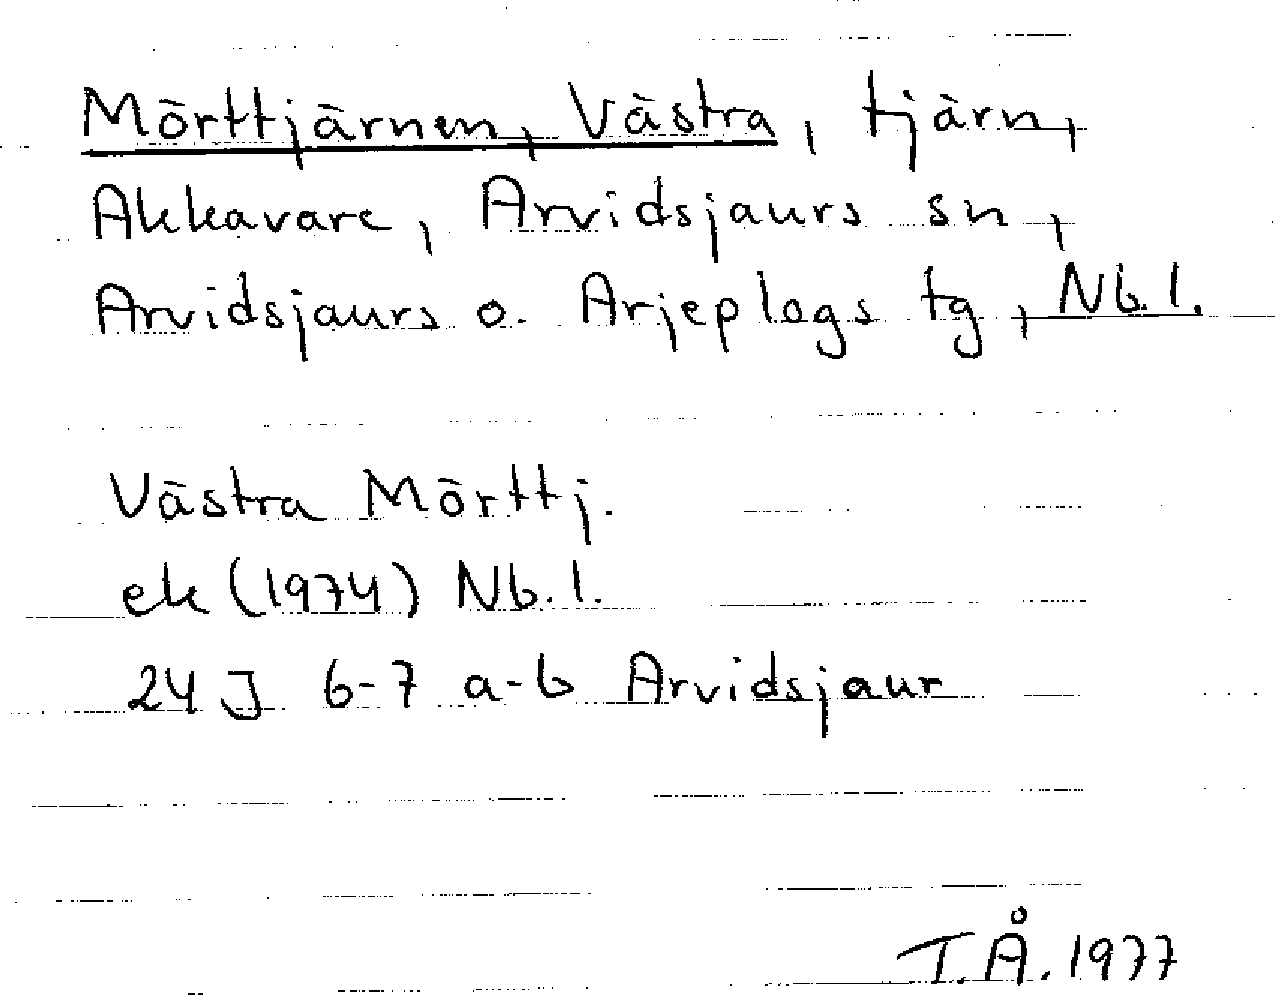 Mörttjärnen, Västra, tjärn,
Akkavare, Arvidsjaurs sn,
Arvidsjaurs o. Arjeplogs tg, Nb.l.
Västra Mörttj.
ek (1974) Nb.l.
24 J 6-7 a-b Arvidsjaur
T.Å. 1977